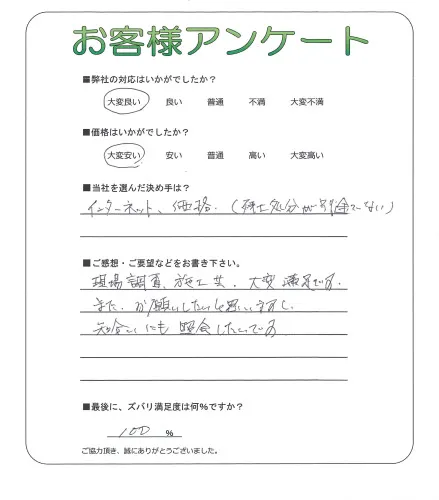 お客様アンケート
■弊社の対応はいかがでしたか?
大変良い 良い 普通 不満 大変不満
■価格はいかがでしたか?
大変安い 安い 普通 高い 大変高い
■当社を選んだ決め手は?
インターネット、価格.(残土処分が別途でない)
■ご感想・ご要望などをお書き下さい。
現場調査、施工共、大変満足です.
また、お願いしたいと思いますし、
知合いにも照会したいです
■最後に、ズバリ満足度は何%ですか?
100 %
ご協力頂き、誠にありがとうございました。